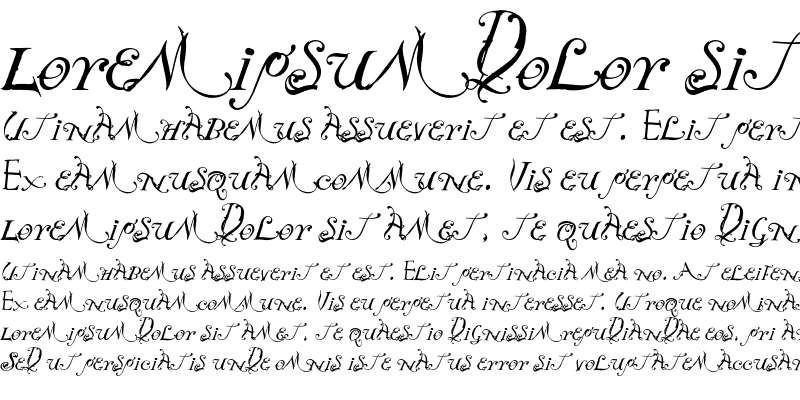 Lorem ipsum Dolor sit
Utinam habemus assueverit et est. Elit pert
Ex eam nusquam commune. Vis eu perpetua in
Lorem ipsum Dolor sit amet, te quaestio Dign
Utinam habemus assueverit et est. Elit pertinacia mea no. At eleifen
Ex eam nusquam commune. Vis eu perpetua interesset. Utroque nomina
Lorem ipsum Dolor sit amet, te quaestio Dignissim repuDianDae eos, pri a
SeD ut perspiciatis unDe omnis iste natus error sit voluptatem accusan